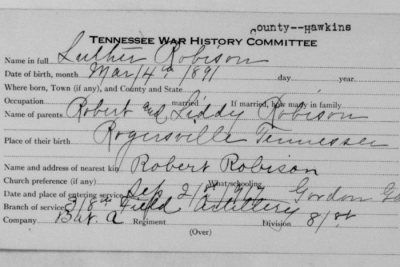 County--Hawkins
TENNESSEE WAR HISTORY COMMITTEE
Name in full Luther Robison
Date of birth, month Mar 14th 1891 day year
Where born, Town (if any), and County and State
Occupation married. If married, how many in family
Name of parents Robert and Liddy Robison
Place of their birth Rogersville Tennessee
Name and address of nearest kin Robert Robison
Church preference (if any) What schooling
Date and place of entering service Sep 1917 Gordon Ga
Branch of service 318th Field Artillery
Company Bat. A Regiment Division 81st
(Over)